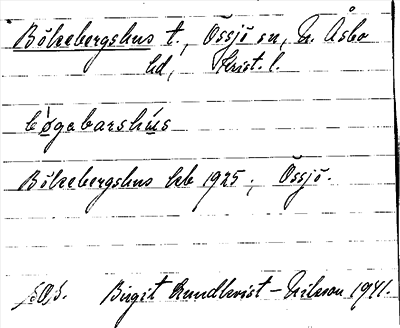 Bökebergshus t., Össjö sn, N. Åsbo
hd, Krist. l.
bøgabarshus
Bökebergshus kb 1925; Össjö.
Birgit Lundkvist-Nilsson 1941.